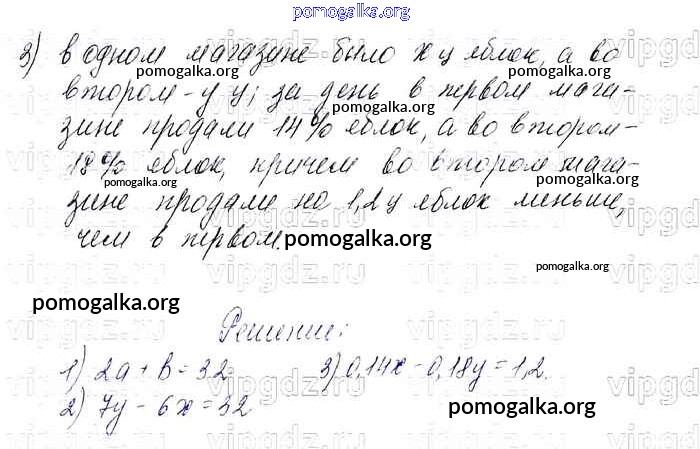 pomogalka.org
3) в одном магазине было x ц яблок, а во
pomogalka.org pomogalka.org
втором - y ц; за день в первом мага-
pomogalka.org
зине продали 14% яблок, а во втором -
18% яблок, причем во втором мага-
pomogalka.org pomogalka.org
зине продали на 1,2 ц яблок меньше,
чем в первом.
pomogalka.org
pomogalka.org
pomogalka.org
Решение:
1) 2a + b = 32 3) 0,14x - 0,18y = 1,2.
2) 7y - 6x = 32
pomogalka.org